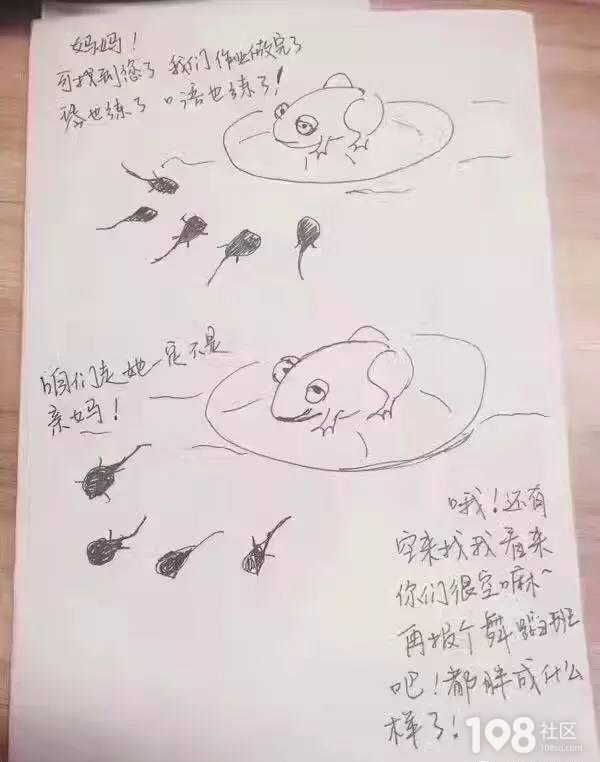 妈妈！
可找到您了 我们作业做完了
琴也练了 口语也练了！
咱们走她一定不是
亲妈！
哦！还有
空来找我看来
你们很空嘛~
再报个舞蹈班
吧！都胖成什么
样了！
108社区
108sq.com